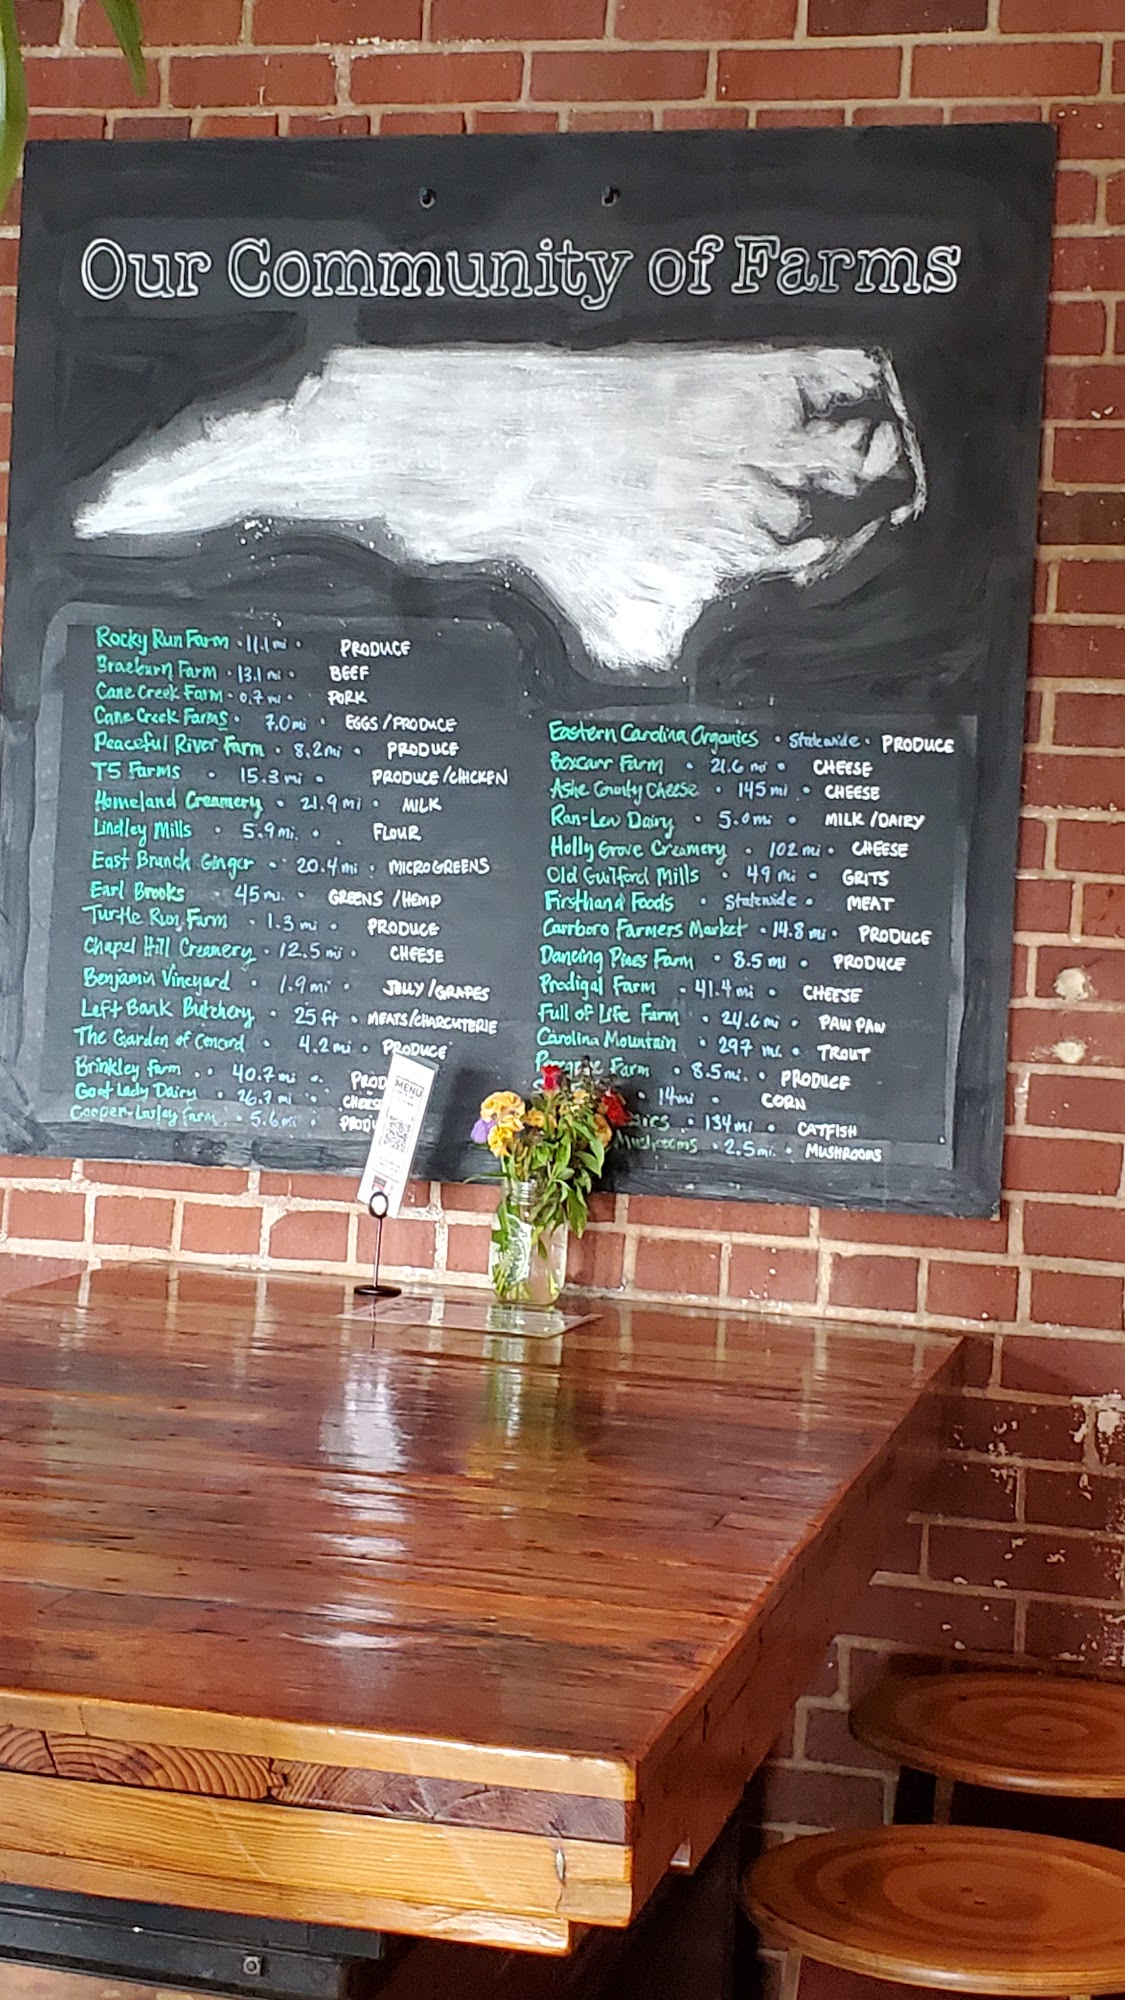 Our Community of Farms
Rocky Run Farm · 11.1 mi · PRODUCE
Braeburn Farm · 13.1 mi · BEEF
Cane Creek Farm · 0.7 mi · PORK
Cane Creek Farms · 7.0 mi · EGGS / PRODUCE
Peaceful River Farm · 8.2 mi · PRODUCE
T5 Farms · 15.3 mi · PRODUCE / CHICKEN
Homeland Creamery · 21.9 mi · MILK
Lindley Mills · 5.9 mi. · FLOUR
East Branch Ginger · 20.4 mi · MICROGREENS
Earl Brooks · 45 mi. · GREENS / HEMP
Turtle Run Farm · 1.3 mi · PRODUCE
Chapel Hill Creamery · 12.5 mi · CHEESE
Benjamin Vineyard · 1.9 mi · JELLY / GRAPES
Left Bank Butchery · 25 ft · MEATS/CHARCUTERIE
The Garden of Concord · 4.2 mi · PRODUCE
Brinkley Farm · 40.7 mi · PROD
Goat Lady Dairy · 26.7 mi · CHEES
Farm · 5.6 mi · PRODU
Eastern Carolina Organics · Statewide · PRODUCE
Boxcarr Farm · 21.6 mi · CHEESE
Ashe County Cheese · 145 mi · CHEESE
Ran-Lew Dairy · 5.0 mi · MILK / DAIRY
Holly Grove Creamery · 102 mi · CHEESE
Old Guilford Mills · 49 mi · GRITS
Firsthand Foods · Statewide · MEAT
Carrboro Farmers Market · 14.8 mi · PRODUCE
Dancing Pines Farm · 8.5 mi · PRODUCE
Prodigal Farm · 41.4 mi · CHEESE
Full of Life Farm · 24.6 mi · PAW PAW
Carolina Mountain · 297 mi. · TROUT
Farm · 8.5 mi. · PRODUCE
· 14 mi · CORN
· 134 mi · CATFISH
Mushrooms · 2.5 mi. · MUSHROOMS
MENU